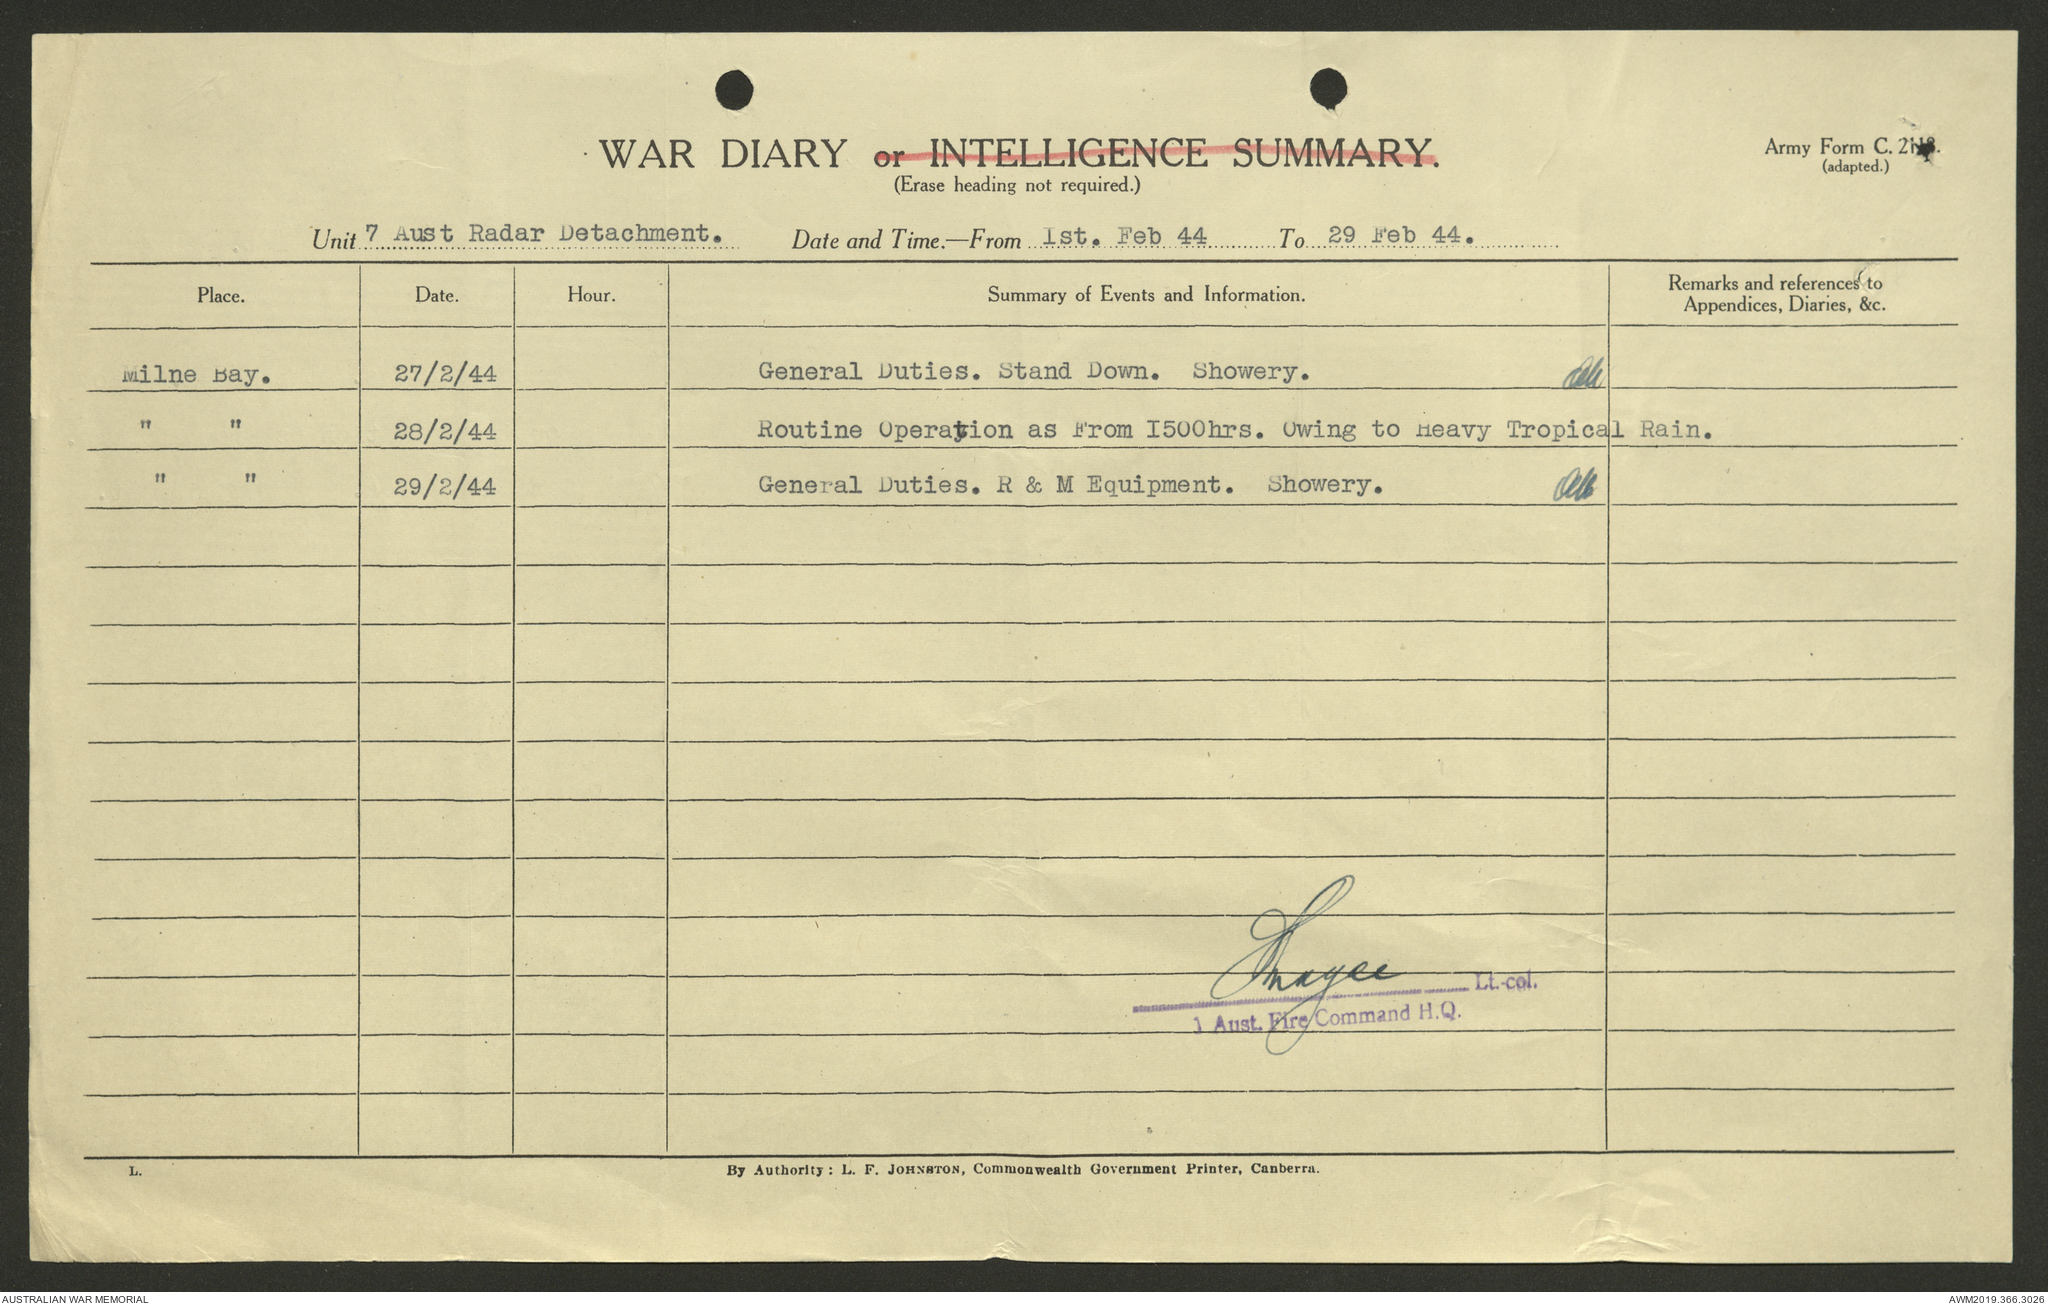 WAR DIARY or INTELLIGENCE SUMMARY.
(Erase heading not required.)
Army Form C. 2118.
(adapted.)
Unit 7 Aust Radar Detachment. Date and Time.—From Ist. Feb 44 To 29 Feb 44.
Place. Date. Hour. Summary of Events and Information. Remarks and references to
Appendices, Diaries, &c.
Milne Bay. 27/2/44 General Duties. Stand Down. Showery.
" " 28/2/44 Routine Operation as From I500hrs. Owing to Heavy Tropical Rain.
" " 29/2/44 General Duties. R & M Equipment. Showery.
Lt.-col.
1 Aust. Fire Command H.Q.
L. By Authority: L. F. JOHNSTON, Commonwealth Government Printer, Canberra.
AUSTRALIAN WAR MEMORIAL AWM2019.366.3026